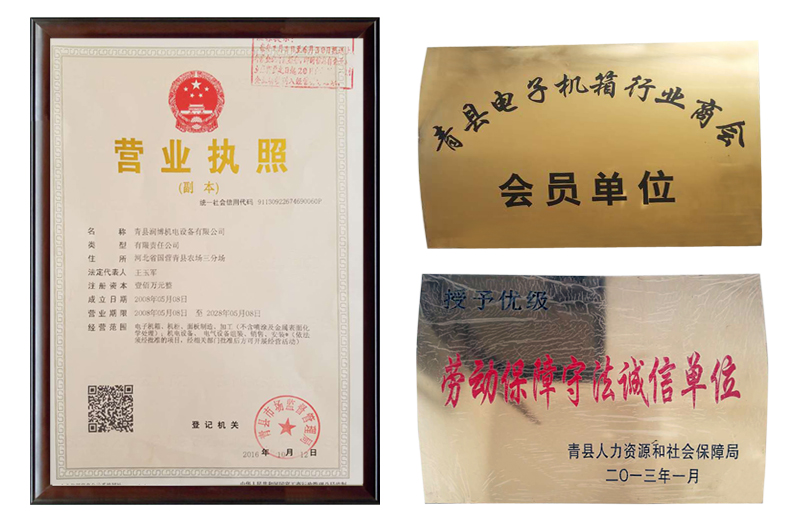 营业执照
(副 本)
统一社会信用代码 91130922674690060P
名 称 青县润博机电设备有限公司
类 型 有限责任公司
住 所 河北省国营青县农场三分场
法定代表人 王玉军
注册资本 壹佰万元整
成立日期 2008年05月08日
营业期限 2008年05月08日 至 2028年05月08日
经营范围 电子机箱、机柜、面板制造、加工(不含喷涂及金属表面化
学处理);机电设备、电气设备组装、销售、安装*(依法
须经批准的项目,经相关部门批准后方可开展经营活动)
登记机关
青县市场监督管理局
2016 年 10 月 12 日
青县电子机箱行业商会
会员单位
授予优级
劳动保障守法诚信单位
青县人力资源和社会保障局
二〇一三年一月